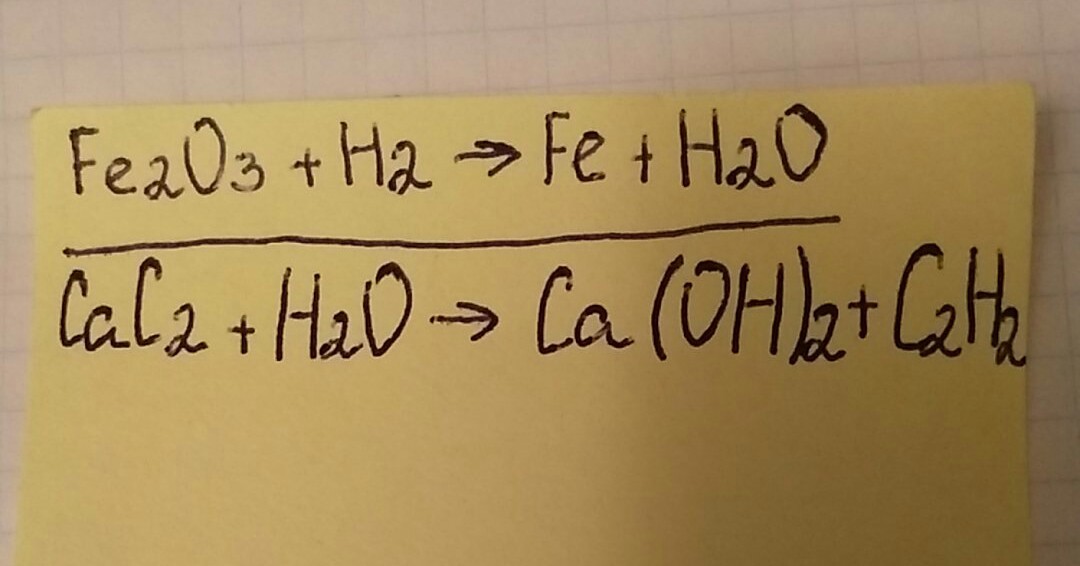 Fe2O3 + H2 → Fe + H2O
CaC2 + H2O → Ca(OH)2 + C2H2